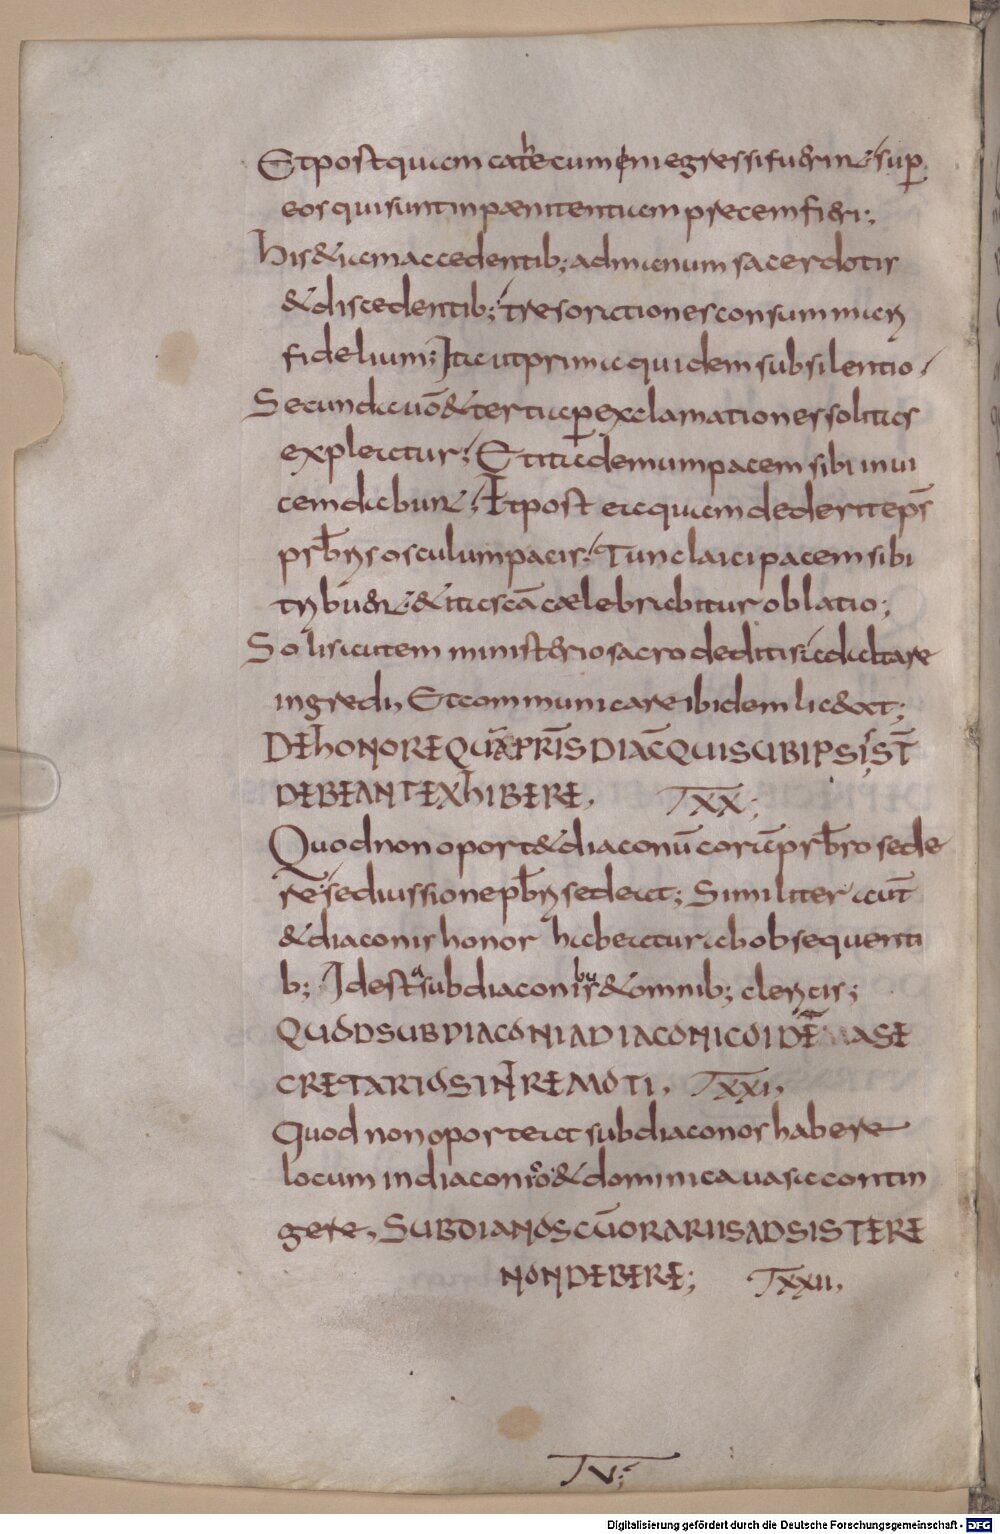 Et postquam catecumini egressi fuerint sup̄
eos qui sunt in pænitentiam precem fieri;
His & iam accedentib; ad manum sacerdotis
& discedentib; tres orationes consummari
fidelium; Ita ut prima quidem sub silentio
Secunda uō & tertia p̄ exclamationes solitas
expleatur; Et ita demum pacem sibi inui
cem dabunt; Et post ea quam dederit ep̄s
prb̄ris osculum pacis; Tunc laici pacem sibi
tribuant; & ita scā cælebrabitur oblatio;
Solis autem ministerio sacro deditis ad altare
ingredi, Et communicare ibidem liceat;
DE HONORE QUĀ PR̄IS DIAC̄ QUI SUB IPSIS S̄T
DEBEANT EXHIBERE, XX;
Quod non oportet diaconū corā prb̄ro sede
re sed iussione pb̄ri sedeat; Similiter aut̄
& diaconis honor habeatur ab obsequenti
b; Id est a subdiaconibus & omnib; clericis;
QUOD SUBDIACONI A DIACONICO ID Ē A SE
CRETARIO SINT REMOTI, XXI,
Quod non oporteat subdiaconos habere
locum in diaconico & dominica uasa contin
gere, SUBDIANOS CŪ ORARIIS ADSISTERE
NON DEBERE; XXII,
IV;
Digitalisierung gefördert durch die Deutsche Forschungsgemeinschaft - DFG